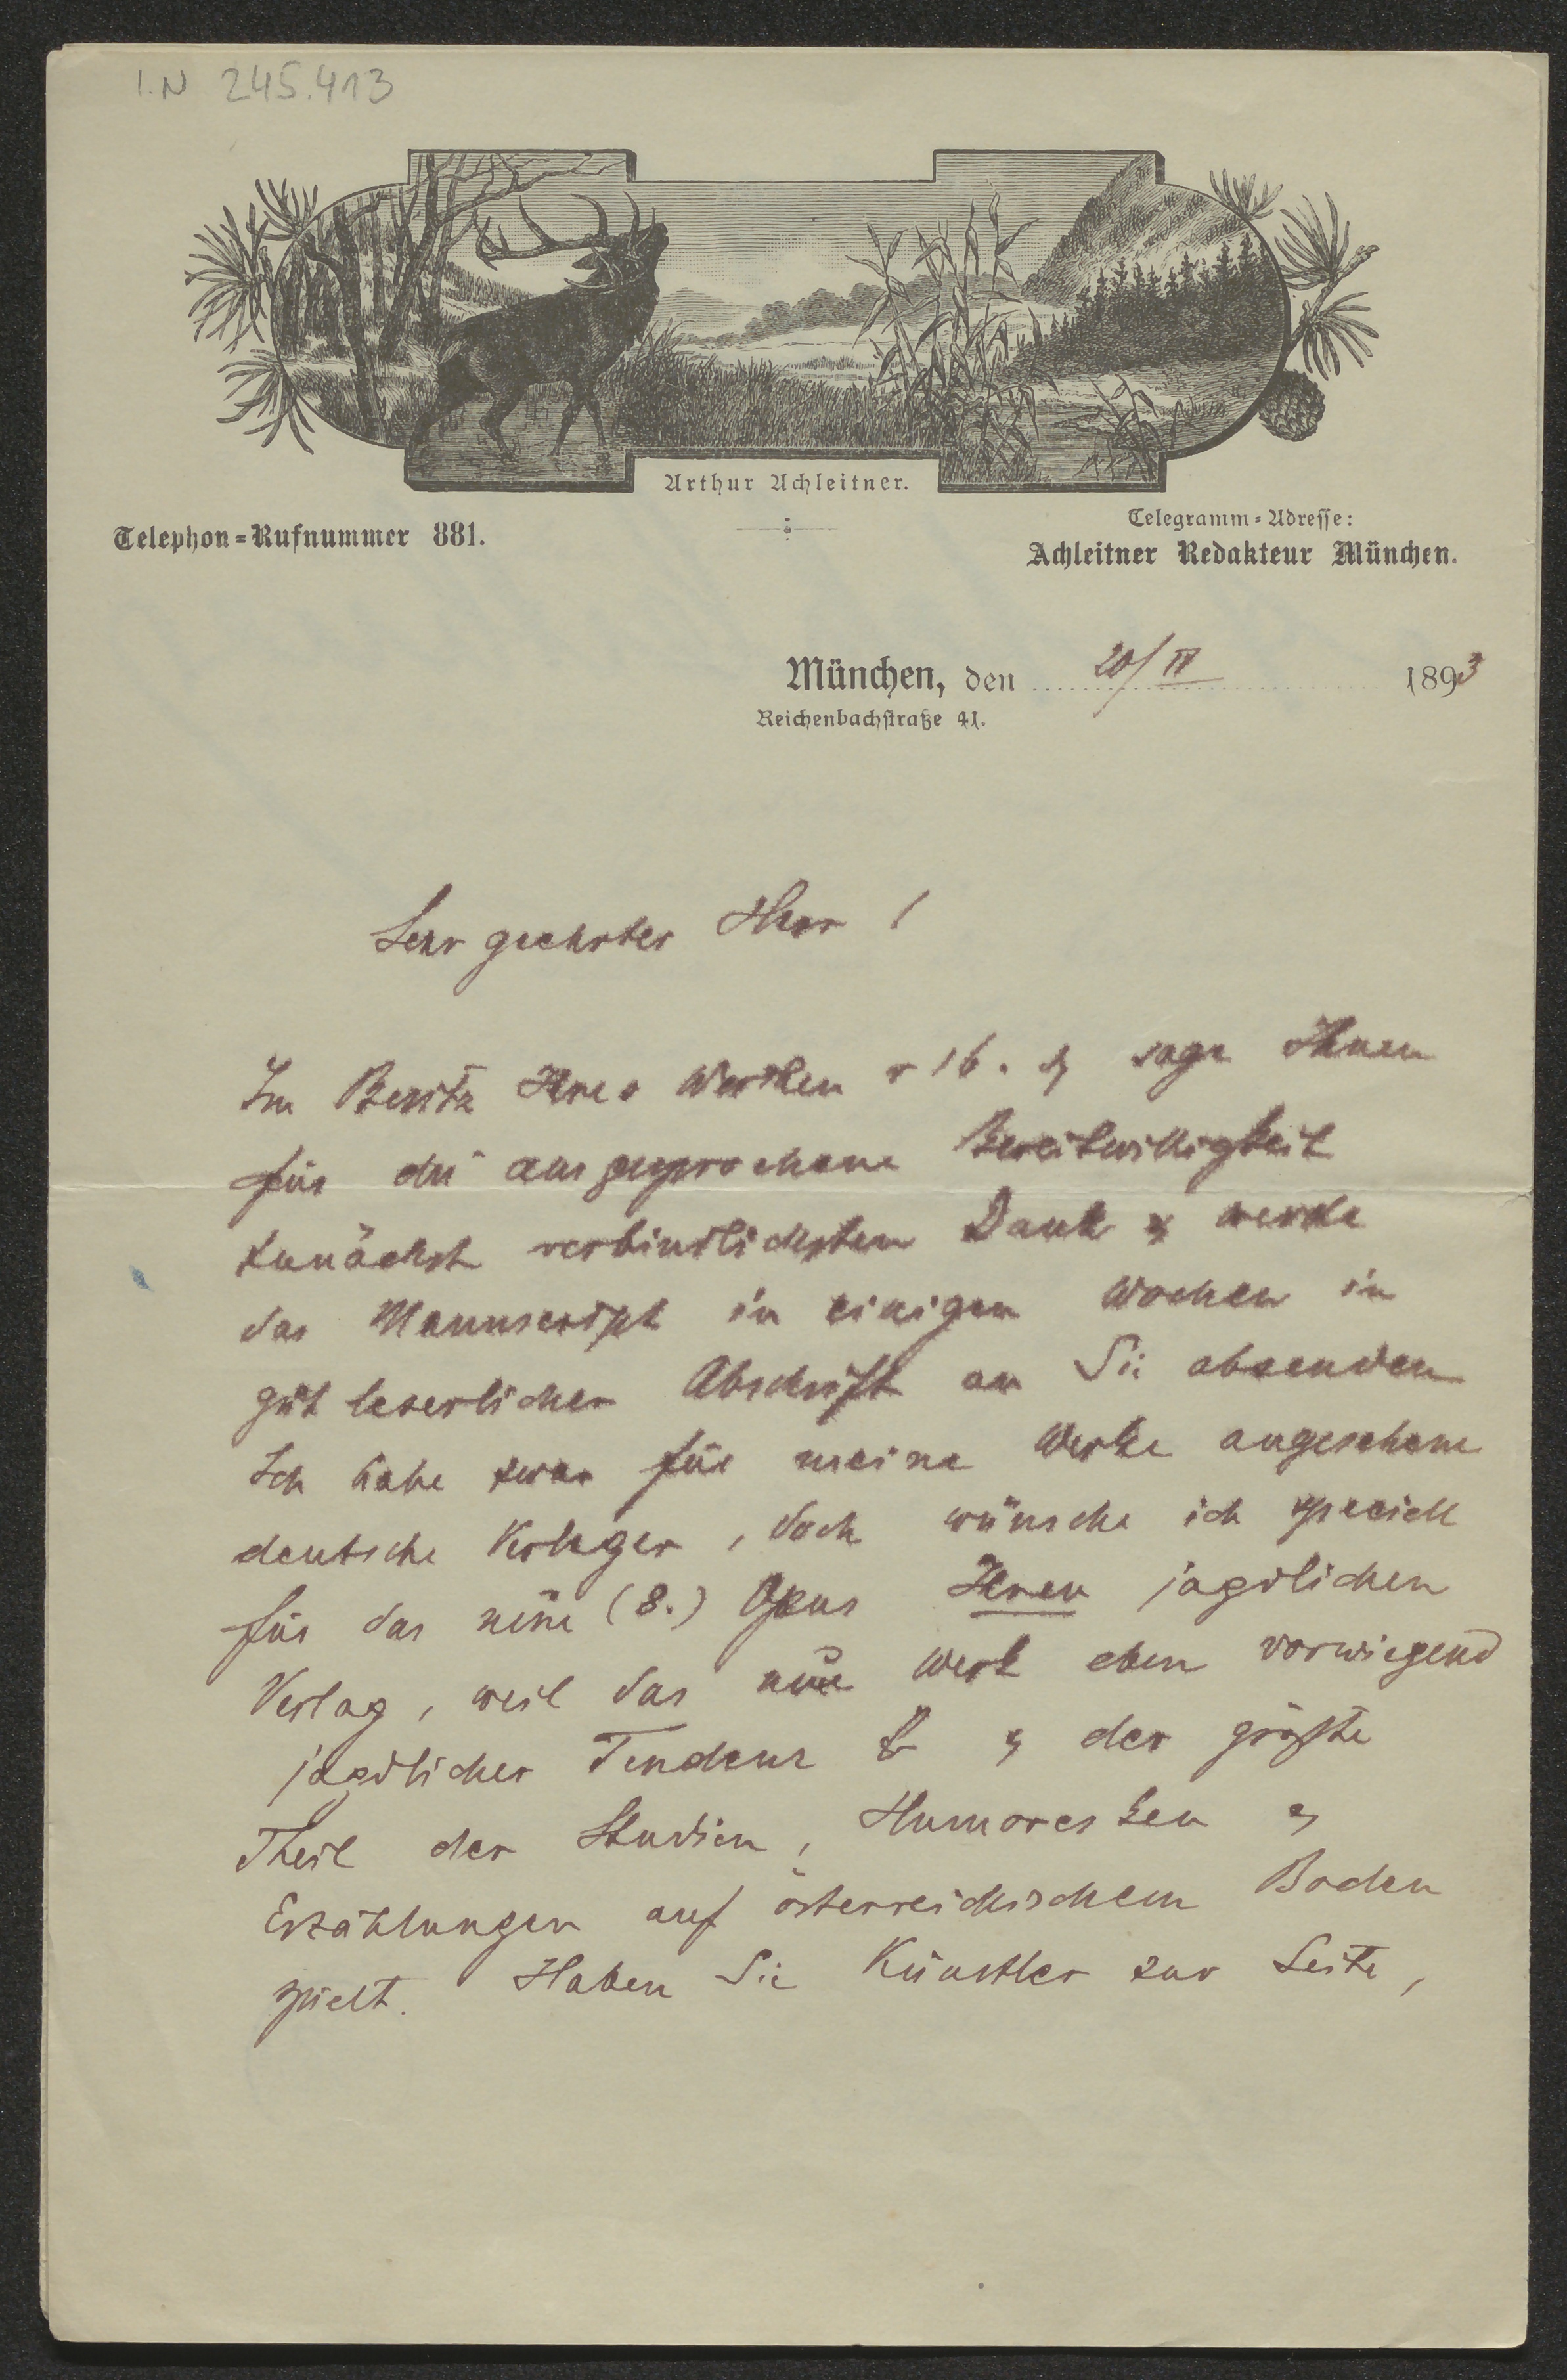 I.N 245.413
Arthur Achleitner.
Telephon=Rufnummer 881.
Telegramm=Adresse:
Achleitner Redakteur München.
München, den 20/II 1893
Reichenbachstraße 41.
Sehr geehrter Herr!
Im Besitz Ihres Werthen v 16. & sage Ihnen
für die ausgesprochene Bereitwilligkeit
zunächst verbindlichsten Dank & werde
das Manuscript in einigen Wochen in
gut leserlicher Abschrift an Sie absenden
Ich habe zwar für meine Werke angesehene
deutsche Verleger, doch wünsche ich speciell
für das neue (8.) Opus Ihren jagdlichen
Verlag, weil das neue Werk eben vorwiegend
jagdlicher Tendenz & der größte
Theil der Studien, Humoresken &
Erzählungen auf österreichischem Boden
spielt. Haben Sie Künstler zur Seite,